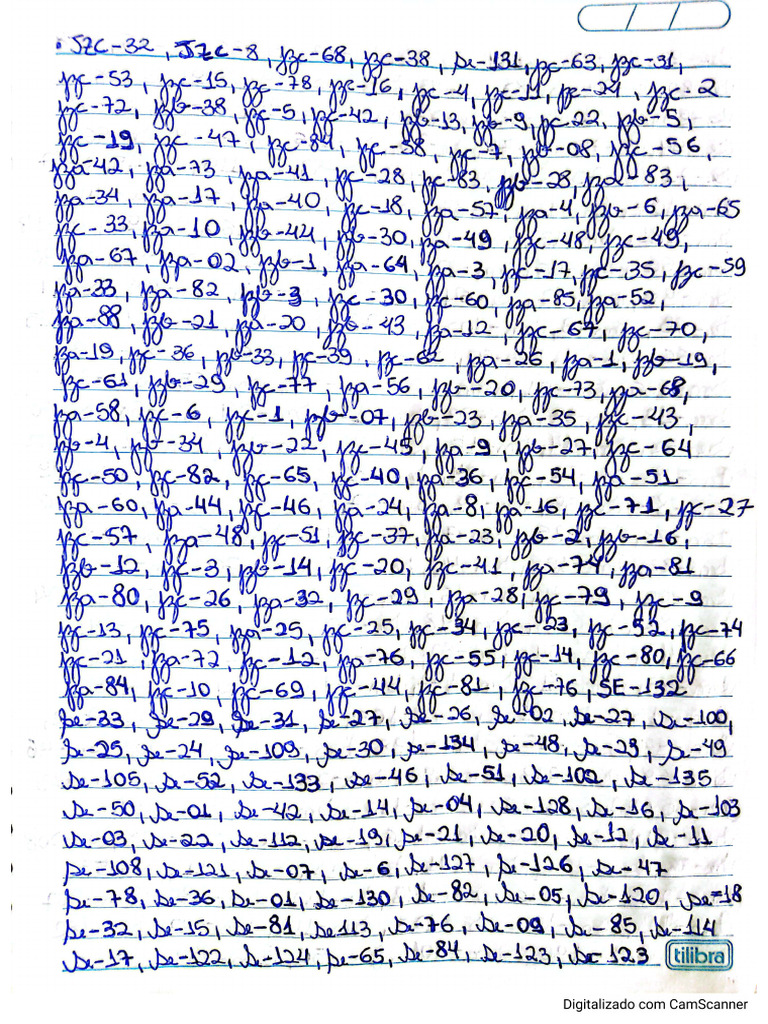 • JZC-32, JZC-8, jzc-68, jzc-38, se-131, jzc-63, jzc-31,
jzc-53, jzc-15, jzc-78, jzc-16, jzc-4, jzc-11, jzc-24, jzc-2
jzc-72, jzb-38, jzc-5, jzc-42, jzb-13, jzb-9, jzc-22, jzb-5,
jzc-19, jzc-47, jzc-84, jzc-58, jzc-7, jzb-08, jzc-56,
jza-42, jza-73, jza-41, jzc-28, jzc-83, jzb-28, jza-83,
jza-34, jza-17, jza-40, jzc-18, jza-57, jza-4, jzb-6, jza-65
jzc-33, jza-10, jzb-44, jzb-30, jza-49, jzc-48, jzc-49,
jza-67, jza-02, jzb-1, jza-64, jza-3, jzc-17, jzc-35, jzc-59
jza-33, jza-82, jzb-3, jzc-30, jzc-60, jza-85, jza-52,
jza-88, jzb-21, jza-20, jzb-43, jza-12, jzc-67, jzc-70,
jza-19, jzc-36, jzb-33, jzc-39, jzc-62, jza-26, jza-1, jzb-19,
jzc-61, jzb-29, jzc-77, jza-56, jzb-20, jzc-73, jza-68,
jza-58, jzc-6, jzc-1, jzb-07, jzb-23, jza-35, jzc-43,
jzb-4, jzb-34, jzb-22, jzc-45, jza-9, jzb-27, jzc-64
jzc-50, jzc-82, jzc-65, jzc-40, jza-36, jzc-54, jza-51
jza-60, jza-44, jzc-46, jza-24, jza-8, jza-16, jzc-71, jzc-27
jzc-57, jza-48, jzc-51, jzc-37, jza-23, jzb-2, jzb-16,
jzb-12, jzc-3, jzb-14, jzc-20, jzc-41, jza-74, jza-81
jza-80, jzc-26, jza-32, jzc-29, jza-28, jzc-79, jzc-9
jzc-13, jzc-75, jza-25, jzc-25, jzc-34, jzc-23, jzc-52, jzc-74
jzc-21, jza-72, jzc-12, jza-76, jzc-55, jzc-14, jzc-80, jzc-66
jza-84, jzc-10, jzc-69, jzc-44, jzc-81, jzc-76, SE-132
se-33, se-29, se-31, se-27, se-26, se-02, se-27, se-100,
se-25, se-24, se-109, se-30, se-134, se-48, se-23, se-49
se-105, se-52, se-133, se-46, se-51, se-102, se-135
se-50, se-01, se-42, se-14, se-04, se-128, se-16, se-103
se-03, se-22, se-112, se-19, se-21, se-20, se-12, se-11
se-108, se-121, se-07, se-6, se-127, se-126, se-47
se-78, se-36, se-01, se-130, se-82, se-05, se-120, se=18
se-32, se-15, se-81, se113, se-76, se-09, se-85, se-114
se-17, se-122, se-124, se-65, se-84, se-123, se-123
tilibra
Digitalizado com CamScanner